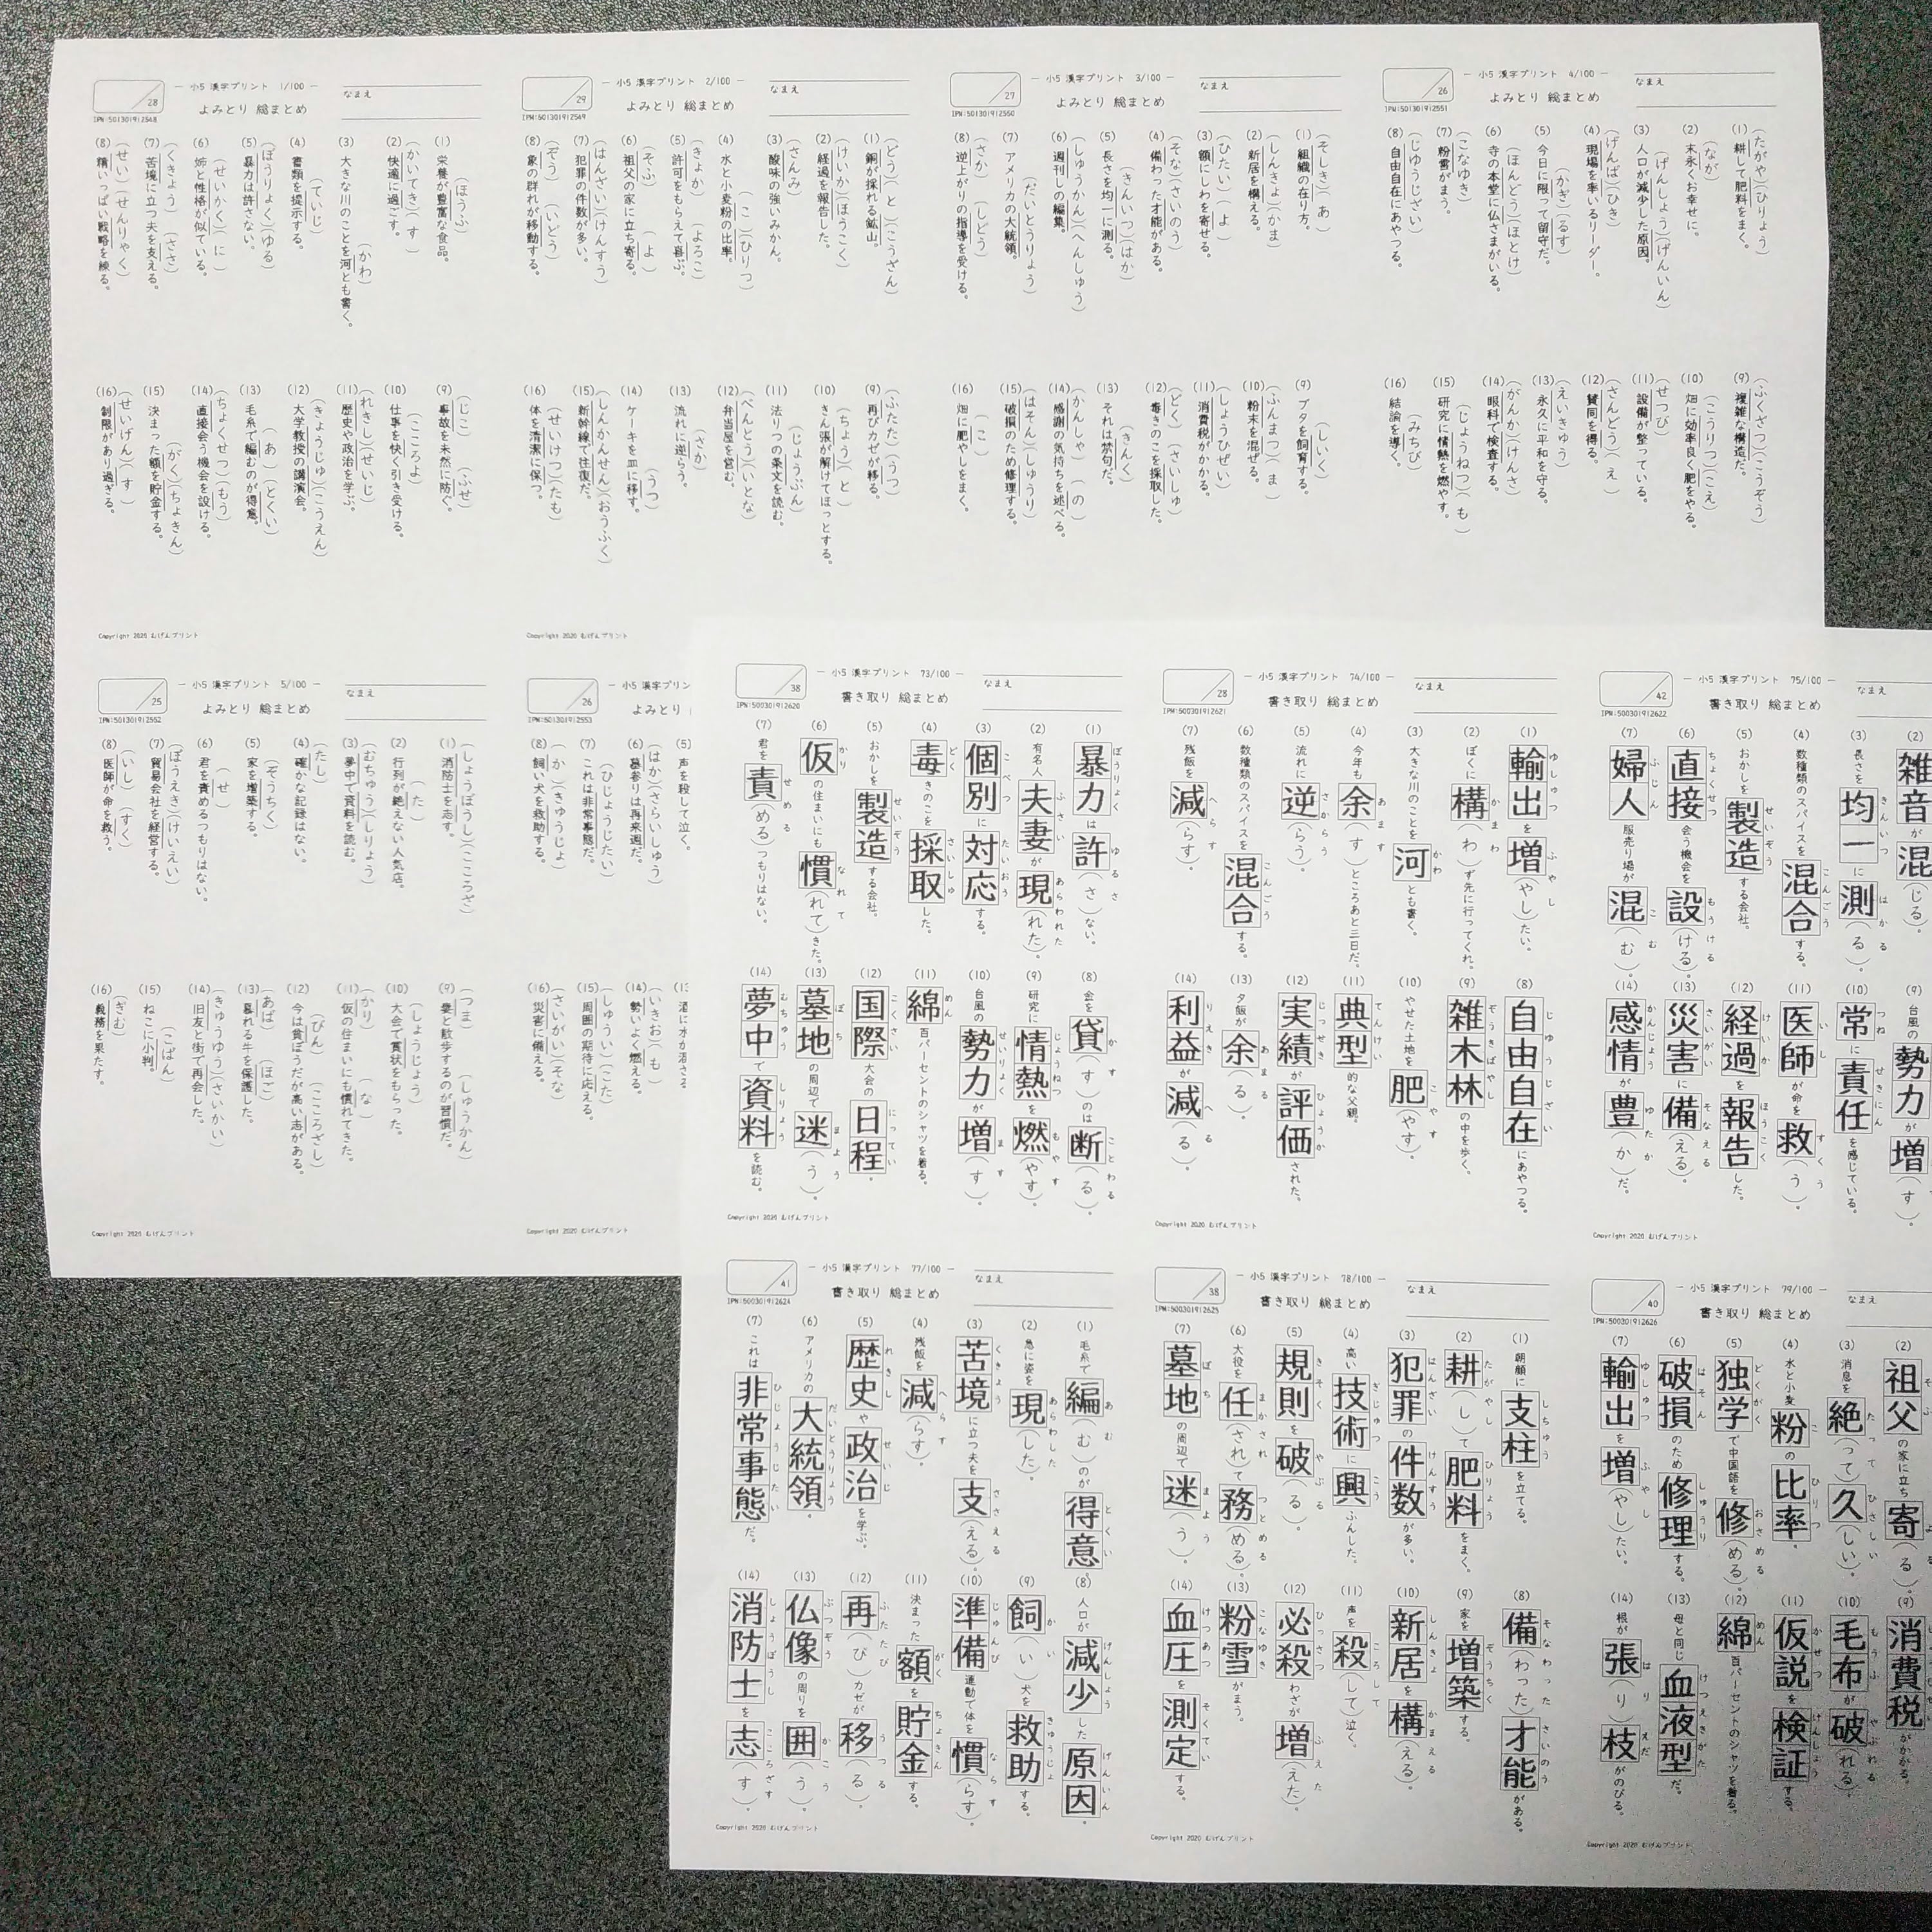 28
IPN:501301912548
― 小5 漢字プリント 1/100 ―
よみとり 総まとめ
なまえ
(1) 栄養が豊富な食品。(ほうふ)
(2) 快適に過ごす。(かいてき)(す)
(3) 大きな川のことを河とも書く。(かわ)
(4) 書類を提示する。(ていじ)
(5) 暴力は許さない。(ぼうりょく)(ゆる)
(6) 姉と性格が似ている。(せいかく)(に)
(7) 苦境に立つ夫を支える。(くきょう)(ささ)
(8) 精いっぱい戦略を練る。(せい)(せんりゃく)
(9) 事故を未然に防ぐ。(じこ)(ふせ)
(10) 仕事を快く引き受ける。(こころよ)
(11) 歴史や政治を学ぶ。(れきし)(せいじ)
(12) 大学教授の講演会。(きょうじゅ)(こうえん)
(13) 毛糸で編むのが得意。(あ)(とくい)
(14) 直接会う機会を設ける。(ちょくせつ)(もう)
(15) 決まった額を貯金する。(がく)(ちょきん)
(16) 制限があり過ぎる。(せいげん)(す)
Copyright 2020 むげんプリント
29
IPN:501301912549
― 小5 漢字プリント 2/100 ―
よみとり 総まとめ
なまえ
(1) 銅が採れる鉱山。(どう)(と)(こうざん)
(2) 経過を報告した。(けいか)(ほうこく)
(3) 酸味の強いみかん。(さんみ)
(4) 水と小麦粉の比率。(こ)(ひりつ)
(5) 許可をもらえて喜ぶ。(きょか)(よろこ)
(6) 祖父の家に立ち寄る。(そふ)(よ)
(7) 犯罪の件数が多い。(はんざい)(けんすう)
(8) 象の群れが移動する。(ぞう)(いどう)
(9) 再びカゼが移る。(ふたた)(うつ)
(10) きん張が解けてほっとする。(ちょう)(と)
(11) 法りつの条文を読む。(じょうぶん)
(12) 弁当屋を営む。(べんとう)(いとな)
(13) 流れに逆らう。(さか)
(14) ケーキを皿に移す。(うつ)
(15) 新幹線で往復だ。(しんかんせん)(おうふく)
(16) 体を清潔に保つ。(せいけつ)(たも)
Copyright 2020 むげんプリント
27
IPN:501301912550
― 小5 漢字プリント 3/100 ―
よみとり 総まとめ
なまえ
(1) 組織の在り方。(そしき)(あ)
(2) 新居を構える。(しんきょ)(かま)
(3) 額にしわを寄せる。(ひたい)(よ)
(4) 備わった才能がある。(そな)(さいのう)
(5) 長さを均一に測る。(きんいつ)(はか)
(6) 週刊しの編集。(しゅうかん)(へんしゅう)
(7) アメリカの大統領。(だいとうりょう)
(8) 逆上がりの指導を受ける。(さか)(しどう)
(9) ブタを飼育する。(しいく)
(10) 粉末を混ぜる。(ふんまつ)(ま)
(11) 消費税がかかる。(しょうひぜい)
(12) 毒きのこを採取した。(どく)(さいしゅ)
(13) それは禁句だ。(きんく)
(14) 感謝の気持ちを述べる。(かんしゃ)(の)
(15) 破損のため修理する。(はそん)(しゅうり)
(16) 畑に肥やしをまく。(こ)
26
IPN:501301912551
― 小5 漢字プリント 4/100 ―
よみとり 総まとめ
なまえ
(1) 耕して肥料をまく。(たがや)(ひりょう)
(2) 末永くお幸せに。(なが)
(3) 人口が減少した原因。(げんしょう)(げんいん)
(4) 現場を率いるリーダー。(げんば)(ひき)
(5) 今日に限って留守だ。(かぎ)(るす)
(6) 寺の本堂に仏さまがいる。(ほんどう)(ほとけ)
(7) 粉雪がまう。(こなゆき)
(8) 自由自在にあやつる。(じゆうじざい)
(9) 複雑な構造だ。(ふくざつ)(こうぞう)
(10) 畑に効率良く肥をやる。(こうりつ)(こえ)
(11) 設備が整っている。(せつび)
(12) 賛同を得る。(さんどう)(え)
(13) 永久に平和を守る。(えいきゅう)
(14) 眼科で検査する。(がんか)(けんさ)
(15) 研究に情熱を燃やす。(じょうねつ)(も)
(16) 結論を導く。(みちび)
25
IPN:501301912552
― 小5 漢字プリント 5/100 ―
よみとり 総まとめ
なまえ
(1) 消防士を志す。(しょうぼうし)(こころざ)
(2) 行列が絶えない人気店。(た)
(3) 夢中で資料を読む。(むちゅう)(しりょう)
(4) 確かな記録はない。(たし)
(5) 家を増築する。(ぞうちく)
(6) 君を責めるつもりはない。(せ)
(7) 貿易会社を経営する。(ぼうえき)(けいえい)
(8) 医師が命を救う。(いし)(すく)
(9) 妻と散歩するのが習慣だ。(つま)(しゅうかん)
(10) 大会で賞状をもらった。(しょうじょう)
(11) 仮の住まいにも慣れてきた。(かり)(な)
(12) 今は貧ぼうだが高い志がある。(びん)(こころざし)
(13) 暴れる牛を保護した。(あば)(ほご)
(14) 旧友と街で再会した。(きゅうゆう)(さいかい)
(15) ねこに小判。(こばん)
(16) 義務を果たす。(ぎむ)
Copyright 2020 むげんプリント
26
IPN:501301912553
― 小5 漢字プリン
よみとり
(5) 声を殺して泣く。
(6) 墓参りは再来週だ。(はか)(さらいしゅう)
(7) これは非常事態だ。(ひじょうじたい)
(8) 飼い犬を救助する。(か)(きゅうじょ)
(14) 勢いよく燃える。(いきお)(も)
(15) 周囲の期待に応える。(しゅうい)(こた)
(16) 災害に備える。(さいがい)(そな)
Copyright 2020 むげんプリント
38
IPN:500301912620
― 小5 漢字プリント 73/100 ―
書き取り 総まとめ
なまえ
(1) 暴力は許(さ)ない。ぼうりょく ゆるさ
(2) 有名人夫妻が現(れた)。ふさい あらわれた
(3) 個別に対応する。こべつ たいおう
(4) 毒きのこを採取した。どく さいしゅ
(5) おかしを製造する会社。せいぞう
(6) 仮の住まいにも慣(れて)きた。かり なれて
(7) 君を責(める)つもりはない。せめる
(8) 金を貸(す)のは断(る)。かす ことわる
(9) 研究に情熱を燃(やす)。じょうねつ もやす
(10) 台風の勢力が増(す)。せいりょく ます
(11) 綿百パーセントのシャツを着る。めん
(12) 国際大会の日程。こくさい にってい
(13) 墓地の周辺で迷(う)。ぼち まよう
(14) 夢中で資料を読む。むちゅう しりょう
Copyright 2020 むげんプリント
28
IPN:500301912621
― 小5 漢字プリント 74/100 ―
書き取り 総まとめ
なまえ
(1) 輸出を増(やし)たい。ゆしゅつ ふやし
(2) ぼくに構(わ)ず先に行ってくれ。かまわ
(3) 大きな川のことを河とも書く。かわ
(4) 今年も余(す)ところあと三日だ。あます
(5) 流れに逆(らう)。さからう
(6) 数種類のスパイスを混合する。こんごう
(7) 残飯を減(らす)。へらす
(8) 自由自在にあやつる。じゆうじざい
(9) 雑木林の中を歩く。ぞうきばやし
(10) やせた土地を肥(やす)。こやす
(11) 典型的な父親。てんけい
(12) 実績が評価された。じっせき ひょうか
(13) 夕飯が余(る)。あまる
(14) 利益が減(る)。りえき へる
Copyright 2020 むげんプリント
42
IPN:500301912622
― 小5 漢字プリント 75/100 ―
書き取り 総まとめ
なまえ
(2) 雑音が混(じる)。
(3) 長さを均一に測(る)。きんいつ はかる
(4) 数種類のスパイスを混合する。こんごう
(5) おかしを製造する会社。せいぞう
(6) 直接会う機会を設(ける)。ちょくせつ もうける
(7) 婦人服売り場が混(む)。ふじん こむ
(9) 台風の勢力が増(す)。
(10) 常に責任を感じている。つね せきにん
(11) 医師が命を救(う)。いし すくう
(12) 経過を報告した。けいか ほうこく
(13) 災害に備(える)。さいがい そなえる
(14) 感情が豊(か)だ。かんじょう ゆたか
Copyright 2020 むげんプリント
41
IPN:500301912624
― 小5 漢字プリント 77/100 ―
書き取り 総まとめ
なまえ
(1) 毛糸で編(む)のが得意。あむ とくい
(2) 急に姿を現(した)。あらわした
(3) 苦境に立つ夫を支(える)。くきょう ささえる
(4) 残飯を減(らす)。へらす
(5) 歴史や政治を学ぶ。れきし せいじ
(6) アメリカの大統領。だいとうりょう
(7) これは非常事態だ。ひじょうじたい
(8) 人口が減少した原因。げんしょう げんいん
(9) 飼(い)犬を救助する。かい きゅうじょ
(10) 準備運動で体を慣(らす)。じゅんび ならす
(11) 決まった額を貯金する。がく ちょきん
(12) 再(び)カゼが移(る)。ふたたび うつる
(13) 仏像の周りを囲(う)。ぶつぞう かこう
(14) 消防士を志(す)。しょうぼうし こころざす
Copyright 2020 むげんプリント
38
IPN:500301912625
― 小5 漢字プリント 78/100 ―
書き取り 総まとめ
なまえ
(1) 朝顔に支柱を立てる。しちゅう
(2) 耕(し)て肥料をまく。たがやし ひりょう
(3) 犯罪の件数が多い。はんざい けんすう
(4) 高い技術に興ふんした。ぎじゅつ こう
(5) 規則を破(る)。きそく やぶる
(6) 大役を任(され)て務(める)。まかされ つとめる
(7) 墓地の周辺で迷(う)。ぼち まよう
(8) 備(わった)才能がある。そなわった さいのう
(9) 家を増築する。ぞうちく
(10) 新居を構(える)。しんきょ かまえる
(11) 声を殺(して)泣く。ころして
(12) 必殺わざが増(えた)。ひっさつ ふえた
(13) 粉雪がまう。こなゆき
(14) 血圧を測定する。けつあつ そくてい
Copyright 2020 むげんプリント
40
IPN:500301912626
― 小5 漢字プリント 79/100 ―
書き取り 総まとめ
なまえ
(2) 祖父の家に立ち寄(る)。
(3) 消息を絶(って)久(しい)。たって ひさしい
(4) 水と小麦粉の比率。こ ひりつ
(5) 独学で中国語を修(める)。どくがく おさめる
(6) 破損のため修理する。はそん しゅうり
(7) 輸出を増(やし)たい。ゆしゅつ ふやし
(9) 消費税がかかる。
(10) 毛布が破(れる)。もうふ やぶれる
(11) 仮説を検証する。かせつ けんしょう
(12) 綿百パーセントのシャツを着る。めん
(13) 母と同じ血液型だ。けつえきがた
(14) 根が張(り)枝がのびる。はり えだ
Copyright 2020 むげんプリント